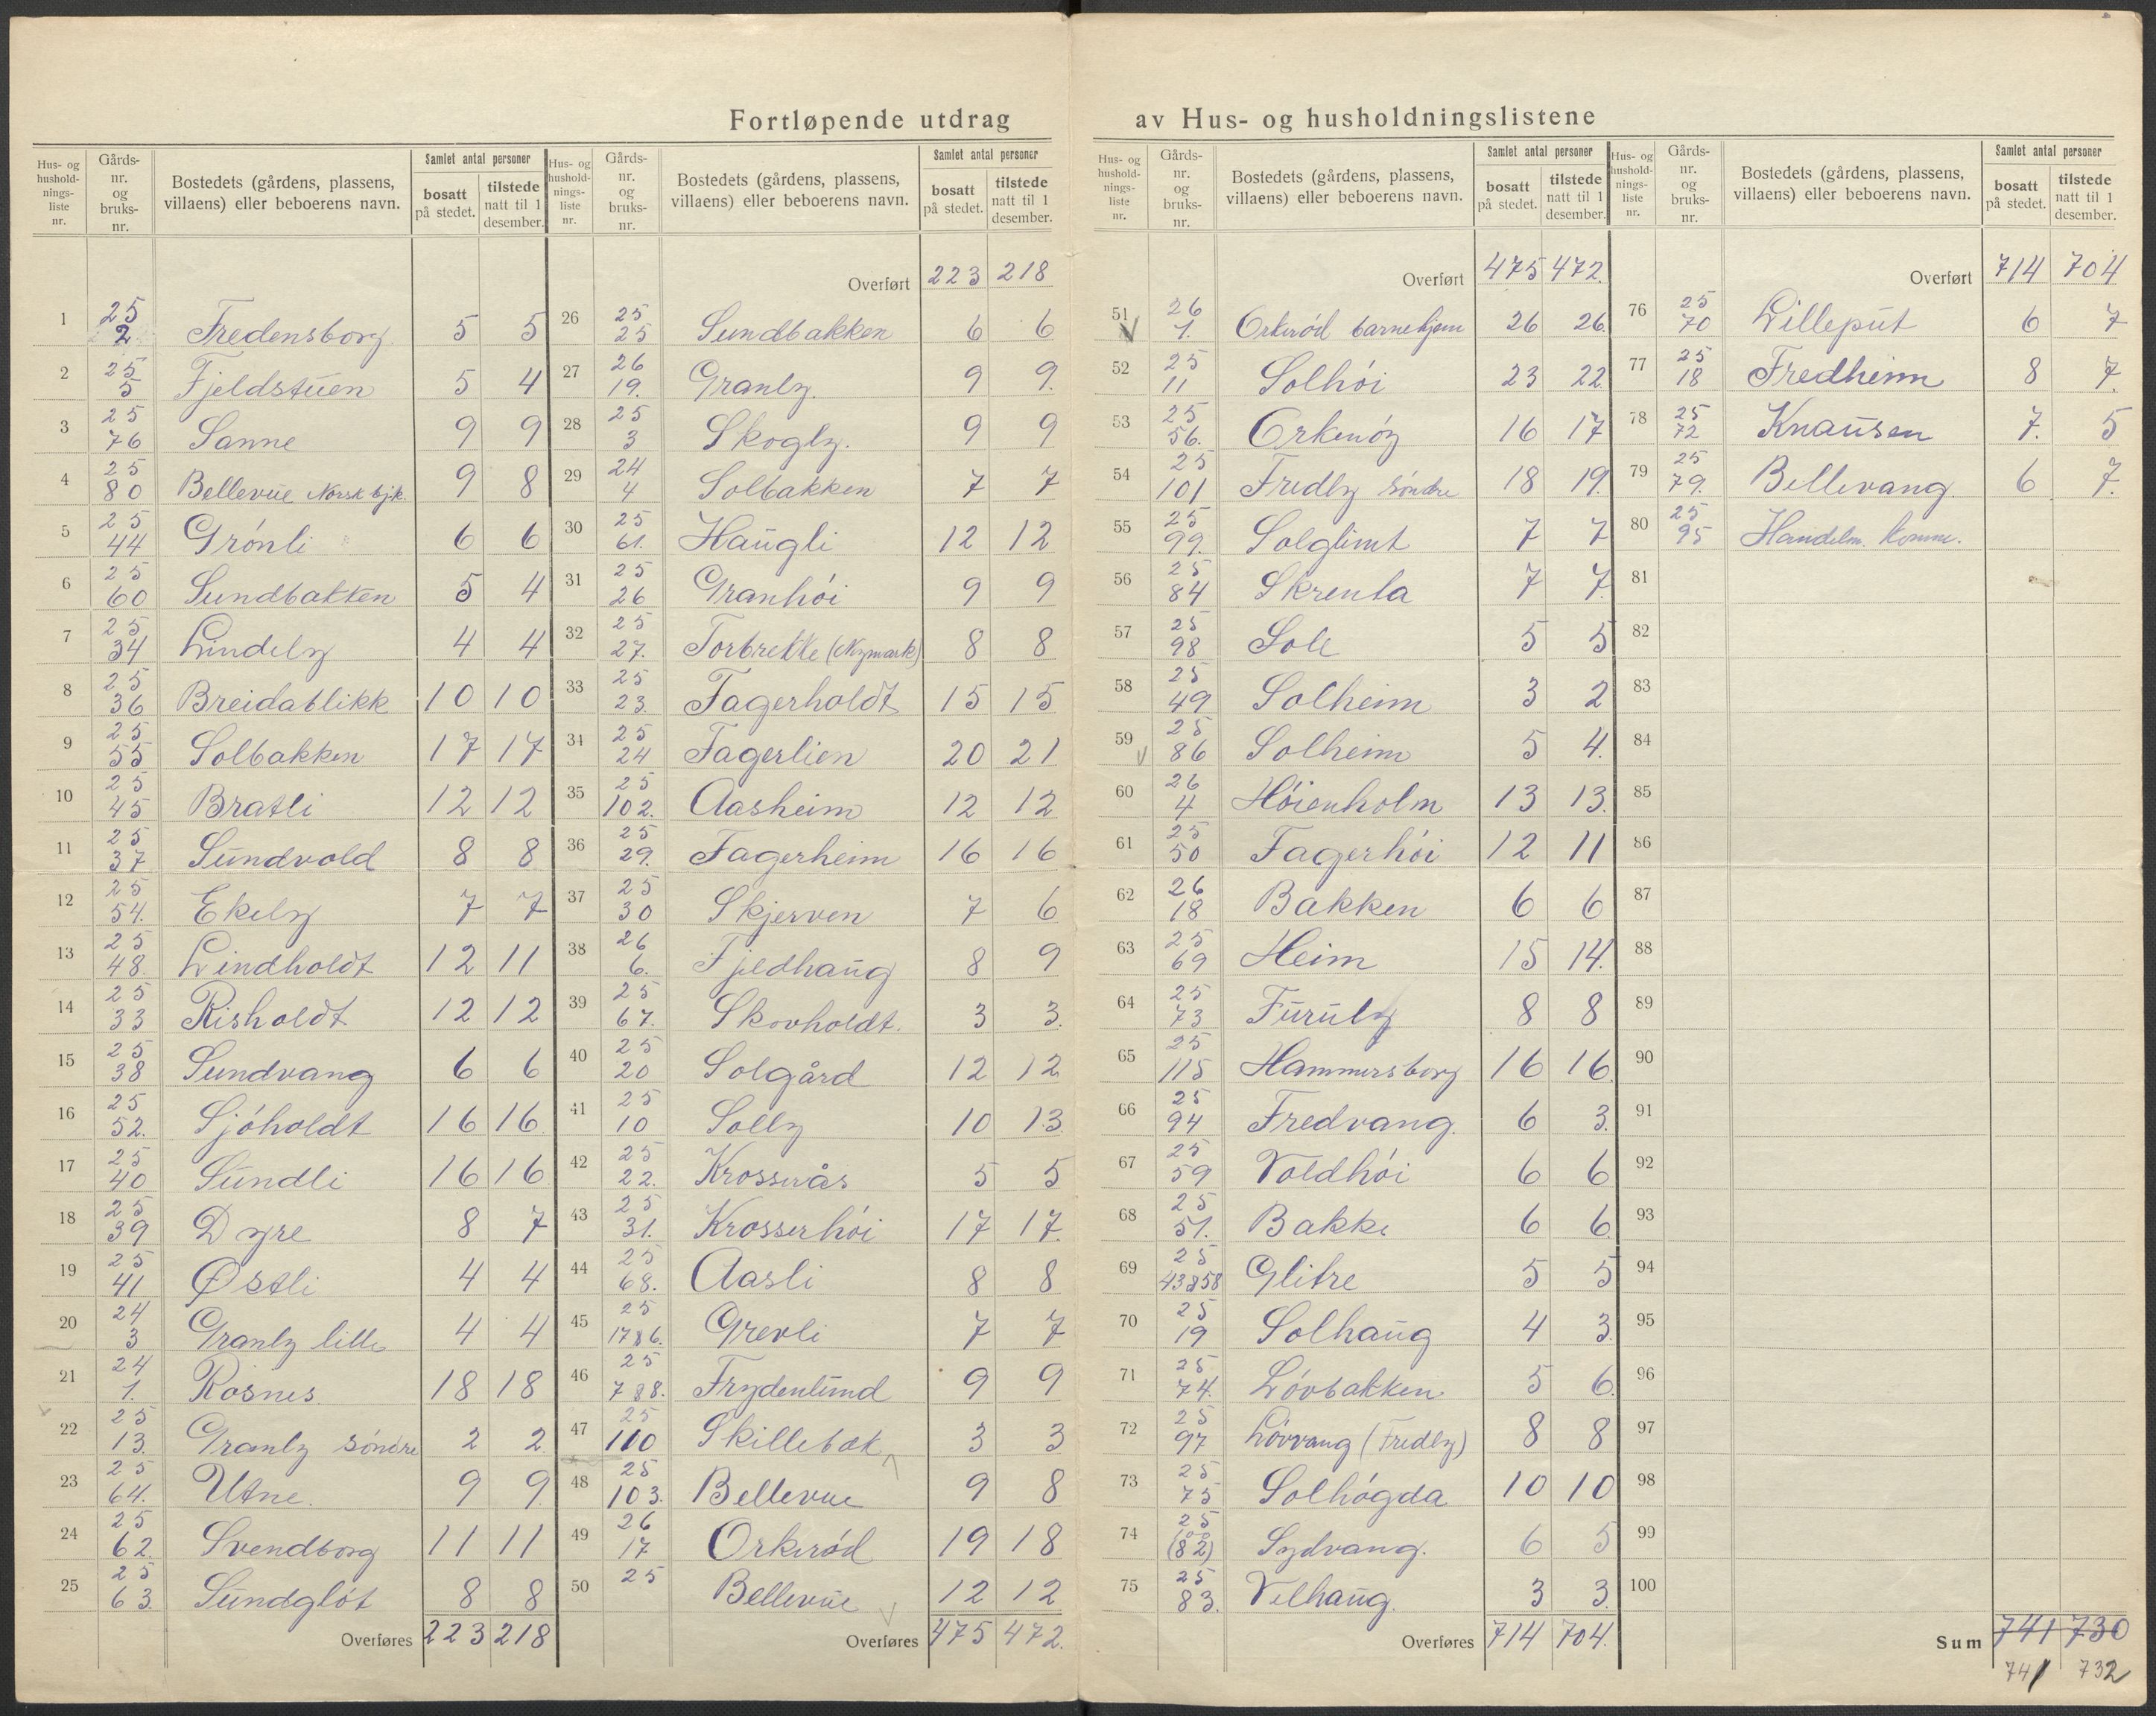 Fortløpende utdrag av Hus- og husholdningslistene
Hus- og hushold-nings-liste nr. | Gårds-nr. og bruks-nr. | Bostedets (gårdens, plassens, villaens) eller beboerens navn. | Samlet antal personer | bosatt på stedet. | tilstede natt til 1 desember.
1 25 2 Fredensborg 5 5
2 25 5 Fjeldstuen 5 4
3 25 76 Sanne 9 9
4 25 80 Bellevue Norsk 9 8
5 25 44 Grónli 6 6
6 25 60 Sundbakken 5 4
7 25 34 Lindely 4 4
8 25 36 Breidablikk 10 10
9 25 55 Solbakken 17 17
10 25 45 Bratli 12 12
11 25 37 Sundvold 8 8
12 25 54. Ekely 7 7
13 25 48. Lindholdt 12 11
14 25 33 Risholdt 12 12
15 25 38 Sundvang 6 6
16 25 52. Sjóholdt 16 16
17 25 40 Sundli 16 16
18 25 39 Dyre 8 7
19 25 41 Østli 4 4
20 24 3 Granly lille 4 4
21 24 1. Rosnes 18 18
22 25 13. Granly sóndre 2 2
23 25 64. Utne. 9 9
24 25 62. Svendborg 11 11
25 25 63. Sundglót 8 8
Overføres 223 218
Hus- og hushold-nings-liste nr. | Gårds-nr. og bruks-nr. | Bostedets (gårdens, plassens, villaens) eller beboerens navn. | Samlet antal personer | bosatt på stedet. | tilstede natt til 1 desember.
Overført 223 218
26 25 25 Sundbakken 6 6
27 26 19. Granly. 9 9.
28 25 3 Skogly. 9 9
29 24 4 Solbakken 7 7
30 25 61. Haugli 12 12
31 25 26 Granhói 9 9
32 25 27. Torbrekke (Nymark) 8 8
33 25 23. Fagerholdt 15 15
34 25 24 Fagerlien 20 21
35 25 102. Aasheim 12 12
36 25 29. Fagerheim 16 16
37 25 30 Skjerven 7 6
38 26 6. Fjeldhaug 8 9
39 25 67. Skovholdt. 3 3.
40 25 20 Solgård 12 12
41 25 10 Solly 10 13.
42 25 22. Krossnås 5 5
43 25 31. Krosserhói 17 17.
44 25 68. Aasli 8 8
45 25 17&6. Grevli 7 7
46 25 7&8. Frydenlund 9 9
47 25 110 Skillebæk 3 3
48 25 103. Bellevue 9 8
49 26 17 Orkeród 19 18
50 25 Bellevue 12 12
Overføres 475 472.
Hus- og hushold-nings-liste nr. | Gårds-nr. og bruks-nr. | Bostedets (gårdens, plassens, villaens) eller beboerens navn. | Samlet antal personer | bosatt på stedet. | tilstede natt til 1 desember.
Overført 475 472.
51 26 1. Orkeród barnehjem 26 26.
52 25 11 Solhói 23 22
53 25 56. Orkenóy 16 17
54 25 101 Fredly sóndre 18 19.
55 25 99. Solglimt 7 7
56 25 84 Skrenta 7 7.
57 25 98 Sole 5 5
58 25 49 Solheim 3 2
59 25 86 Solheim 5 4.
60 26 4 Hóienholm 13 13.
61 25 50 Fagerhói 12 11
62 26 18 Bakken 6 6
63 25 69 Heim 15 14.
64 25 73 Furuly 8 8
65 25 115 Hammersborg 16 16
66 25 94 Fredvang. 6 3.
67 25 59 Voldhói 6 6
68 25 51. Bakke 6 6
69 25 43&58 Glitre 5 5
70 25 19 Solhaug 4 3.
71 25 74. Lóvbakken. 5 6.
72 25 97 Lóvvang (Fredly) 8 8
73 25 75 Solhógda 10 10
74 25 (82) Sydvang. 6 5
75 25 83. Velhaug. 3 3.
Overføres 714 704.
Hus- og hushold-nings-liste nr. | Gårds-nr. og bruks-nr. | Bostedets (gårdens, plassens, villaens) eller beboerens navn. | Samlet antal personer | bosatt på stedet. | tilstede natt til 1 desember.
Overført 714 704
76 25 70 Lilleput 6 7
77 25 18 Fredheim 8 7.
78 25 72 Knausen 7. 5
79 25 79. Bellevang. 6 7.
80 25 95 Handelm. Komm.
81
82
83
84
85
86
87
88
89
90
91
92
93
94
95
96
97
98
99
100
Sum 741 730
741 732